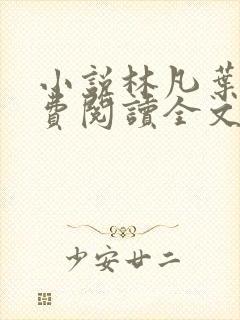 小說林凡葉
費閱讀全文
少安廿二